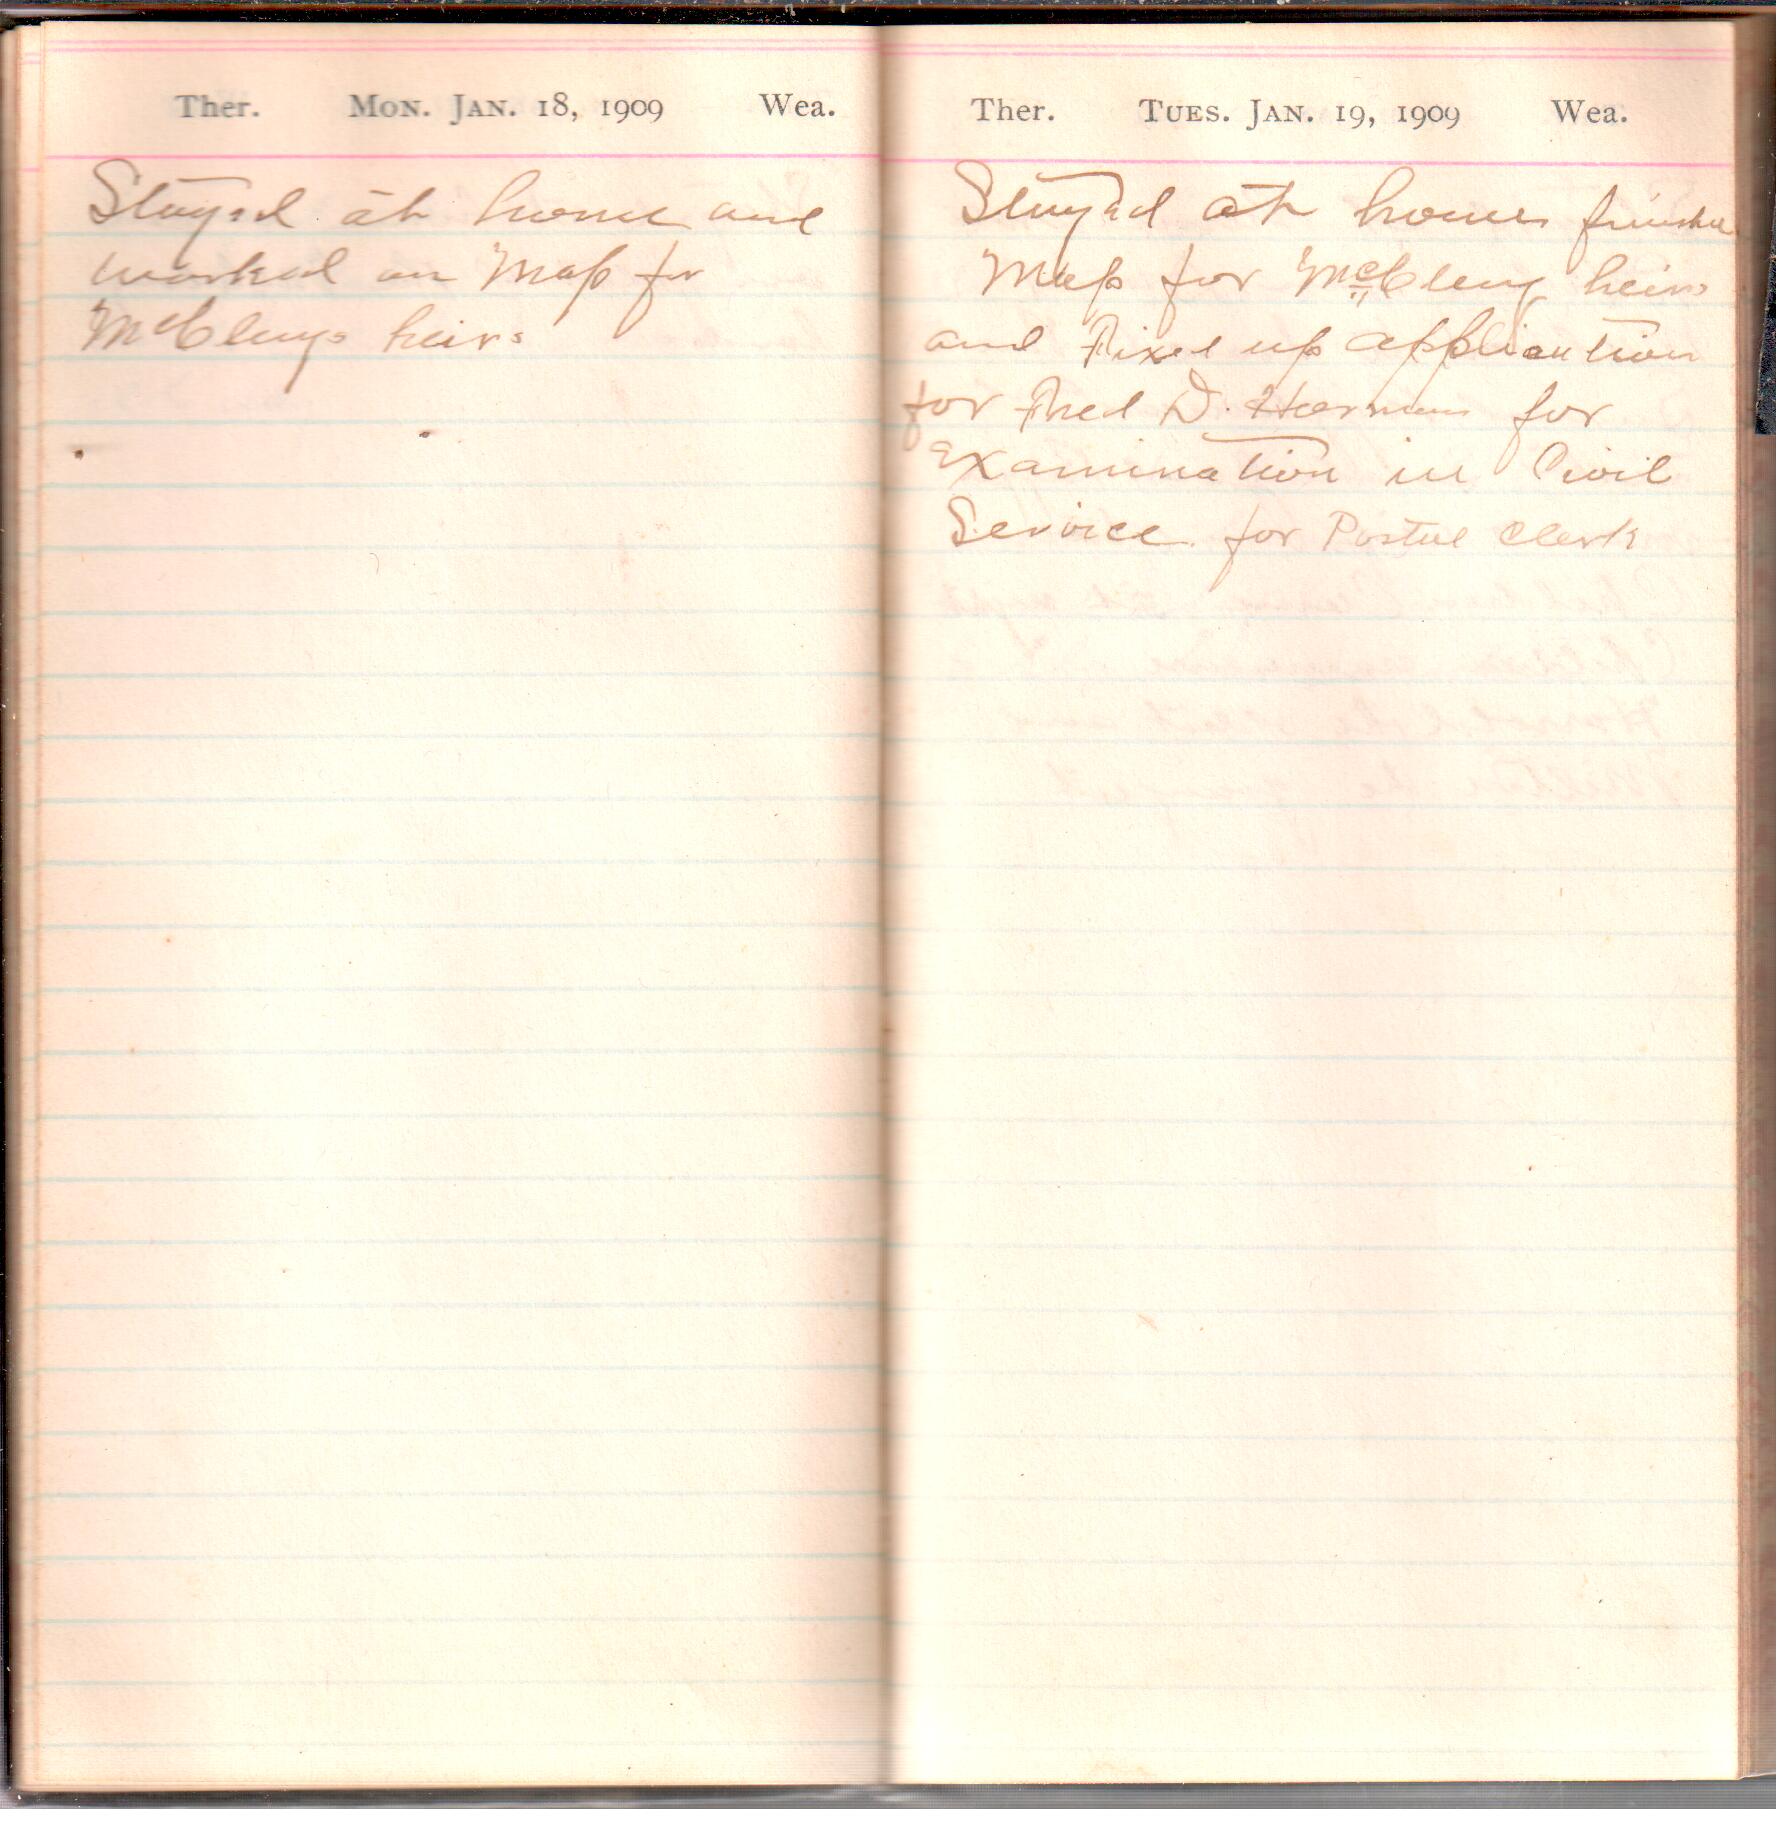 Ther. Mon. Jan. 18, 1909 Wea.
Stayed at home and
worked on Map for
McClenys heirs
Ther. Tues. Jan. 19, 1909 Wea.
Stayed at home
Map for McCleny heirs
and Fixed up application
for Fred D. Herman for
Examination in Civil
Service for Postal Clerk